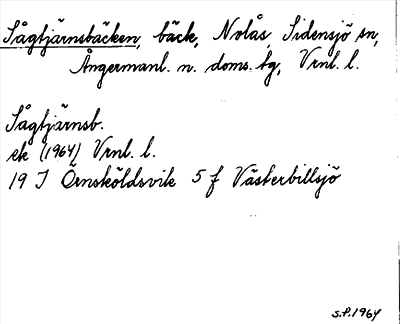 Sågtjärnsbäcken, bäck, Nolås, Sidensjö sn,
Ångermanl. n. doms. tg, Vrnl. l.
Sågtjärnsb.
ek (1964) Vrnl. l.
19 J Örnsköldsvik 5 f Västerbillsjö
S.P. 1964